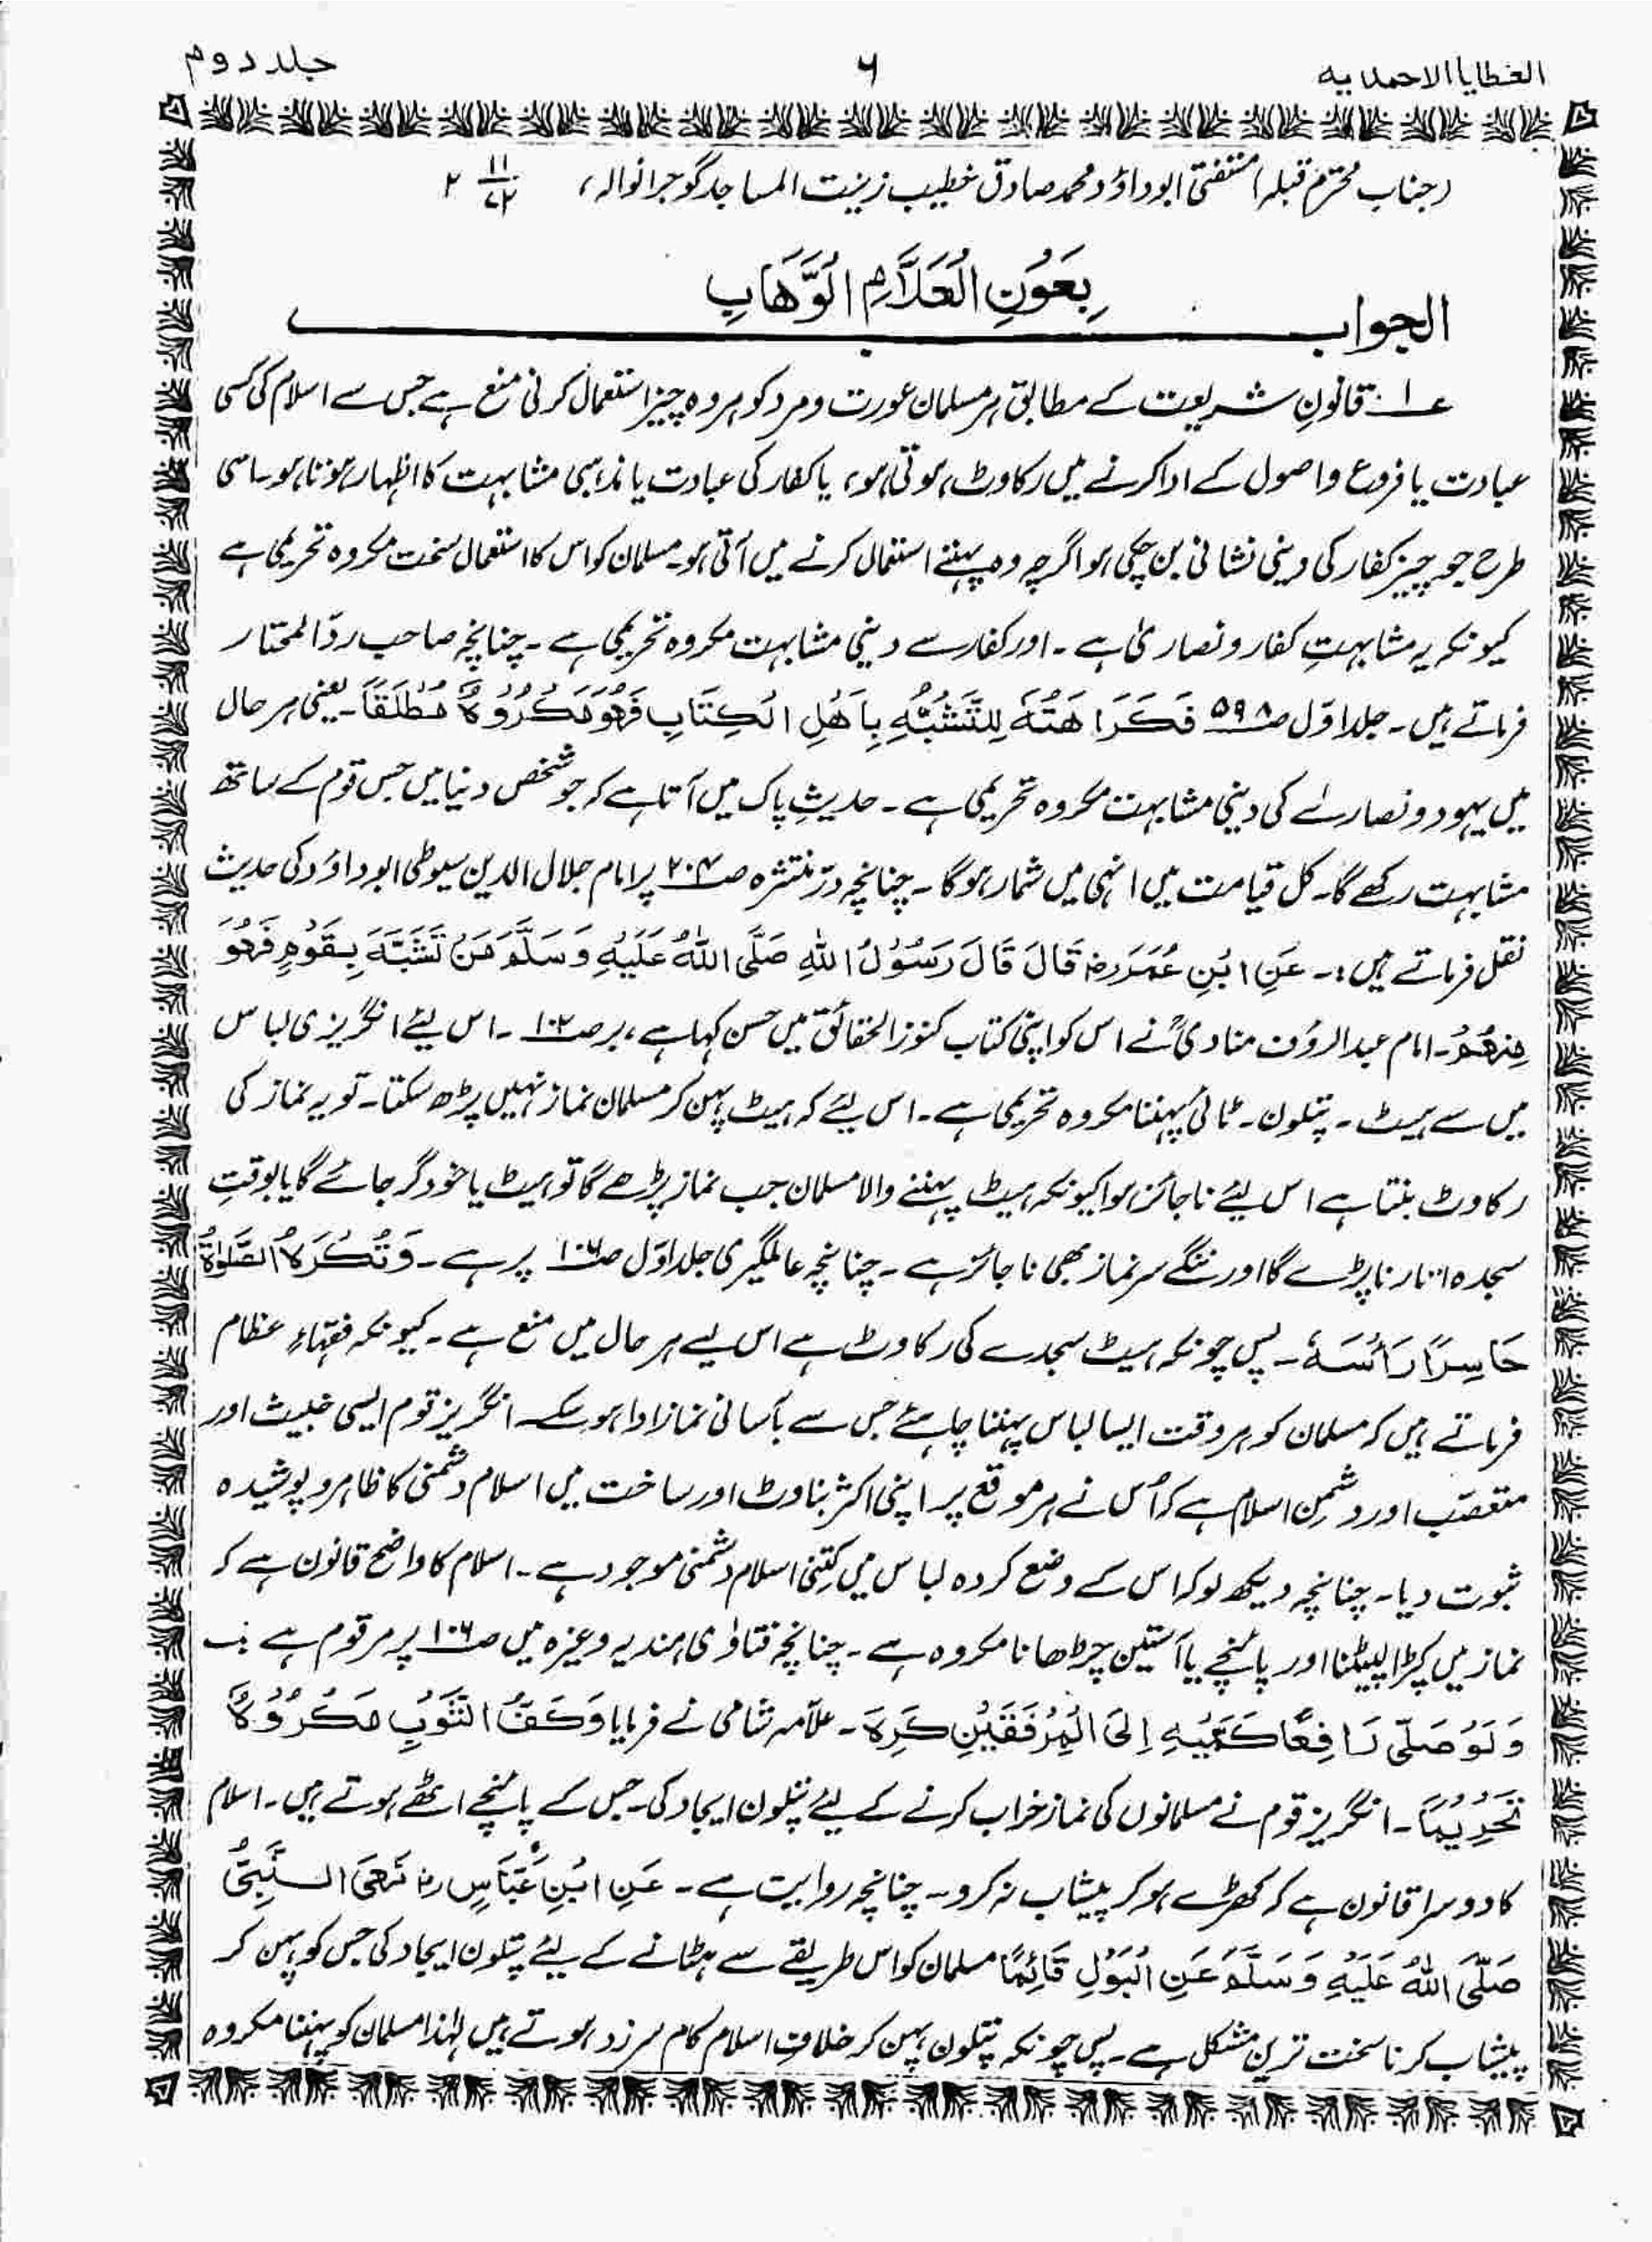 العطایا الاحمدیہ ۶ جلد دوم
(جناب محترم قبلہ مستفتی ابوداؤد محمد صادق خطیب زینت المساجد گوجرانوالہ، ۲ ۱۱/۷۲
بِعَوْنِ الْعَلَّامِ الْوَهَّابِ
الجواب
۱؎ قانونِ شریعت کے مطابق ہر مسلمان عورت و مرد کو ہر وہ چیز استعمال کرنی منع ہے جس سے اسلام کی کسی
عبادت یا فروع و اصول کے ادا کرنے میں رکاوٹ ہوتی ہو، یا کفار کی عبادت یا مذہبی مشابہت کا اظہار ہوتا ہو۔ اسی
طرح جو چیز کفار کی دینی نشانی بن چکی ہو اگرچہ وہ پہننے استعمال کرنے میں آتی ہو۔ مسلمان کو اس کا استعمال سخت مکروہ تحریمی ہے
کیونکہ یہ مشابہتِ کفار و نصاریٰ ہے۔ اور کفار سے دینی مشابہت مکروہ تحریمی ہے۔ چنانچہ صاحب ردّ المحتار
فرماتے ہیں۔ جلد اوّل صـ ۵۹۸ فَكَرَاهَتُهٗ لِلتَّشَبُّهِ بِاَهْلِ الْكِتَابِ فَهُوَ مَكْرُوْهٌ مُطْلَقًا۔ یعنی ہر حال
میں یہود و نصاریٰ کی دینی مشابہت مکروہ تحریمی ہے۔ حدیثِ پاک میں آتا ہے کہ جو شخص دنیا میں جس قوم کے ساتھ
مشابہت رکھے گا۔ کل قیامت میں انہی میں شمار ہوگا۔ چنانچہ درّ منتشرہ صـ ۲۰۴ پر امام جلال الدین سیوطی ابوداؤد کی حدیث
نقل فرماتے ہیں:۔ عَنِ ابْنِ عُمَرَ رضؓ قَالَ قَالَ رَسُوْلُ اللهِ صَلَّى اللهُ عَلَيْهِ وَسَلَّمَ مَنْ تَشَبَّهَ بِقَوْمٍ فَهُوَ
مِنْهُمْ۔ امام عبد الروٴف منادیؒ نے اس کو اپنی کتاب کنوز الحقائق میں حسن کہا ہے، بر صـ ۱۰۲۔ اس لیئے انگریزی لباس
میں سے ہیٹ۔ پتلون۔ ٹائی پہننا مکروہ تحریمی ہے۔ اس لیئے کہ ہیٹ پہن کر مسلمان نماز نہیں پڑھ سکتا۔ تو یہ نماز کی
رکاوٹ بنتا ہے اس لیئے ناجائز ہوا کیونکہ ہیٹ پہننے والا مسلمان جب نماز پڑھے گا تو ہیٹ یا خود گر جائے گا یا بوقتِ
سجدہ اتارنا پڑے گا اور ننگے سر نماز بھی ناجائز ہے۔ چنانچہ عالمگیری جلد اوّل صـ ۱۰۶ پر ہے۔ وَتُكْرَهُ الصَّلٰوةُ
حَاسِرًا رَاْسَهٗ۔ پس چونکہ ہیٹ سجدے کی رکاوٹ ہے اس لیے ہر حال میں منع ہے۔ کیونکہ فقہاءِ عظام
فرماتے ہیں کہ مسلمان کو ہر وقت ایسا لباس پہننا چاہئے جس سے بآسانی نماز ادا ہو سکے۔ انگریز قوم ایسی خبیث اور
متعصّب اور دشمنِ اسلام ہے کہ اُس نے ہر موقع پر اپنی اکثر بناوٹ اور ساخت میں اسلام دشمنی کا ظاہر و پوشیدہ
ثبوت دیا۔ چنانچہ دیکھ لو کہ اس کے وضع کردہ لباس میں کتنی اسلام دشمنی موجود ہے۔ اسلام کا واضح قانون ہے کہ
نماز میں کپڑا لپیٹنا اور پائنچے یا آستین چڑھانا مکروہ ہے۔ چنانچہ فتاوٰی ہندیہ وغیرہ میں صـ ۱۰۶ پر مرقوم ہے :۔
وَلَوْ صَلّٰى رَافِعًا كُمَّيْهِ اِلَى الْمِرْفَقَيْنِ كَرِهَ۔ علّامہ شامی نے فرمایا وَكَفُّ الثَّوْبِ مَكْرُوْهٌ
تَحْرِيْمًا۔ انگریز قوم نے مسلمانوں کی نماز خراب کرنے کے لیئے پتلون ایجاد کی۔ جس کے پائنچے اٹھے ہوتے ہیں۔ اسلام
کا دوسرا قانون ہے کہ کھڑے ہو کر پیشاب نہ کرو۔ چنانچہ روایت ہے۔ عَنِ ابْنِ عَبَّاسٍ رضؓ نَهَى النَّبِيُّ
صَلَّى اللهُ عَلَيْهِ وَسَلَّمَ عَنِ الْبَوْلِ قَائِمًا مسلمان کو اس طریقے سے ہٹانے کے لیئے پتلون ایجاد کی جس کو پہن کر
پیشاب کرنا سخت ترین مشکل ہے۔ پس چونکہ پتلون پہن کر خلافِ اسلام کام سرزد ہوتے ہیں لہٰذا مسلمان کو پہننا مکروہ